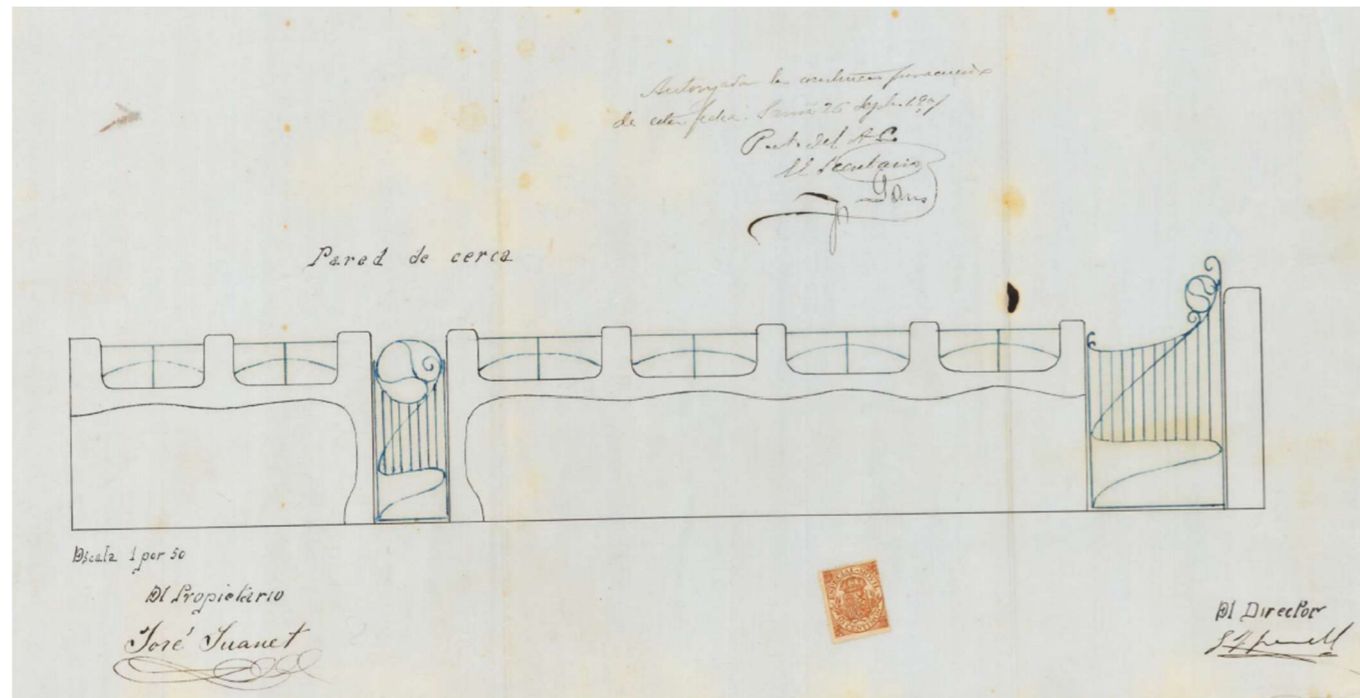 Autorizada la
de esta fecha. Sarriá 26 Sepbre 1907
P. A. del A. C.
El Secretario
Pared de cerca
Escala 1 por 50
El Propietario
José Juanet
El Director